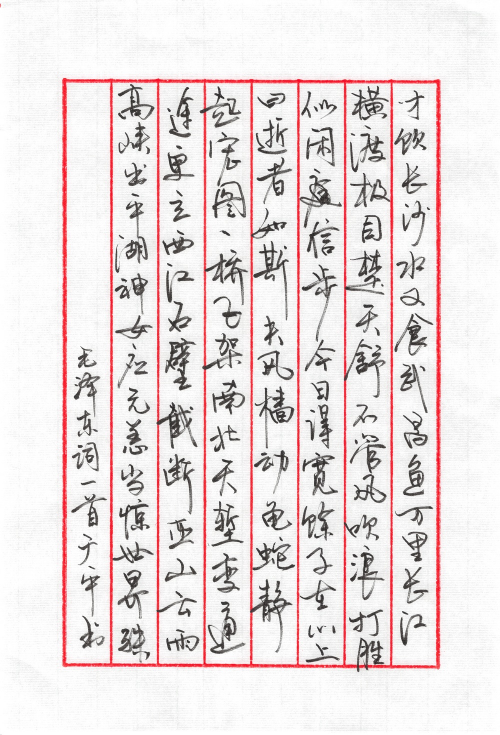 才饮长沙水又食武昌鱼万里长江
横渡极目楚天舒不管风吹浪打胜
似闲庭信步今日得宽馀子在川上
曰逝者如斯夫风樯动龟蛇静
起宏图一桥飞架南北天堑变通
途更立西江石壁截断巫山云雨
高峡出平湖神女应无恙当惊世界殊
毛泽东词一首于平书